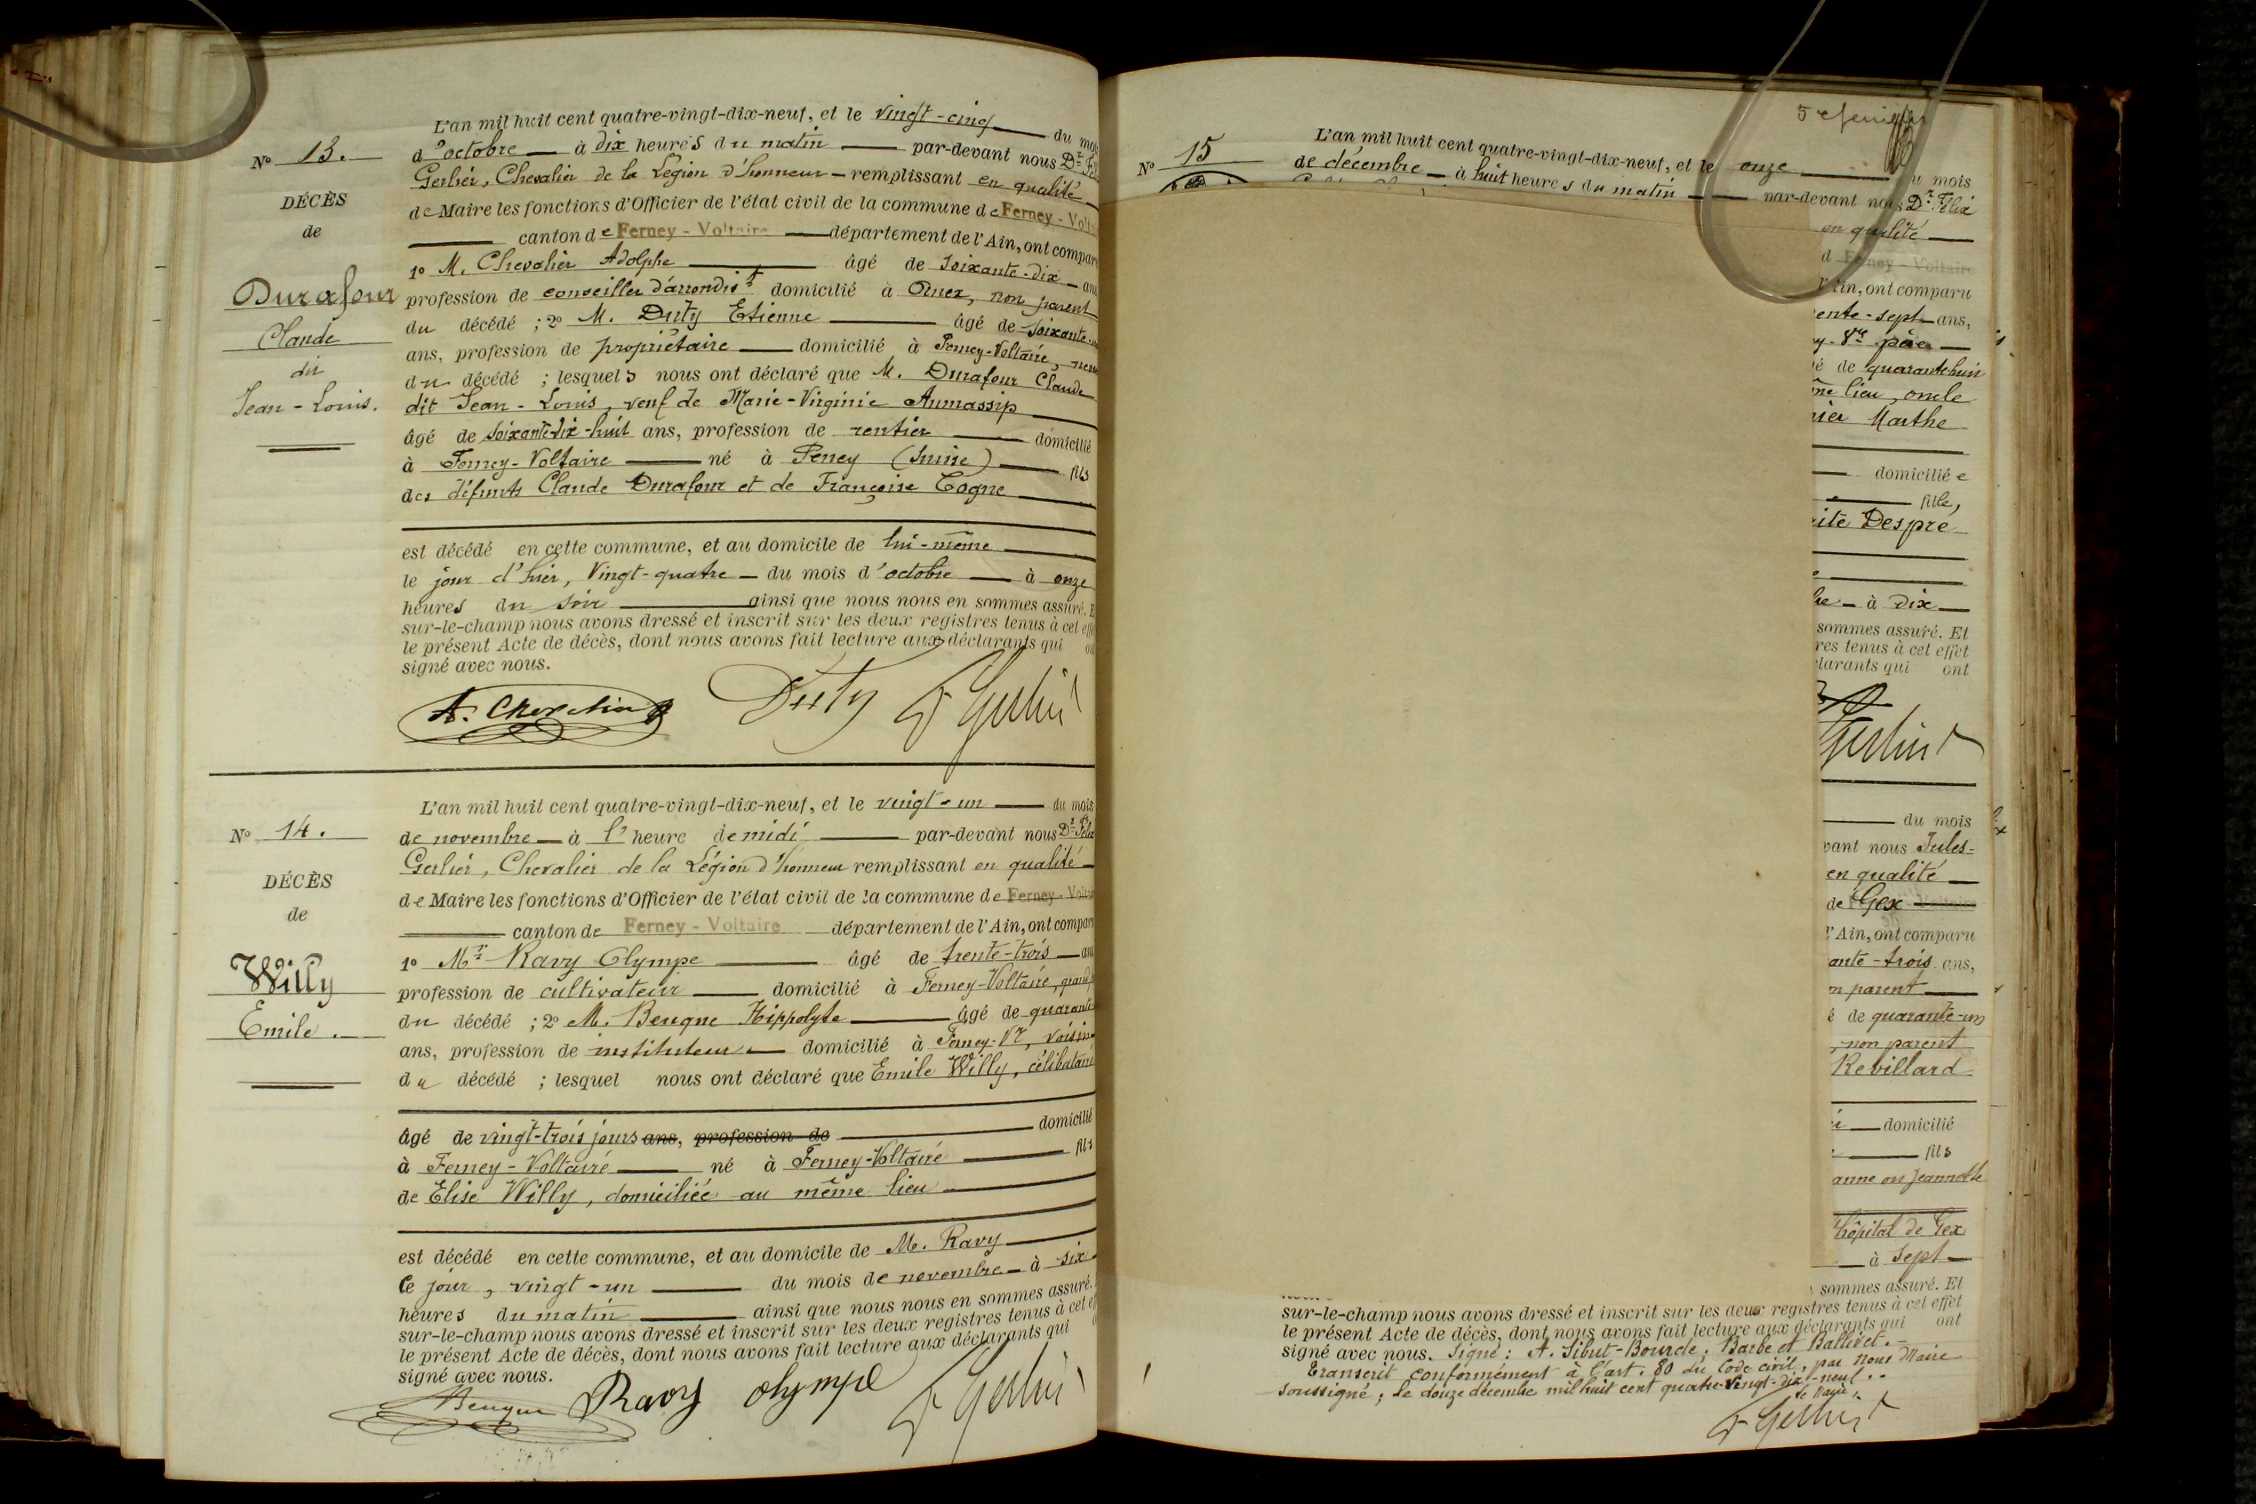 N° 13.
DÉCÈS
de
Durafour
Claude
dit
Jean-Louis.
L'an mil huit cent quatre-vingt-dix-neuf, et le vingt-cinq du mois
d'octobre à dix heures du matin par-devant nous Dr
Gerlier, Chevalier de la Légion d'honneur remplissant en qualité
de Maire les fonctions d'Officier de l'état civil de la commune de Ferney-Volt
canton de Ferney-Voltaire département de l'Ain, ont compar
1° M. Chevalier Adolphe âgé de soixante-dix ans
profession de conseiller d'arrondist domicilié à Ornex, non parent
du décédé ; 2° M. Duty Etienne âgé de soixante
ans, profession de propriétaire domicilié à Ferney-Voltaire,
du décédé ; lesquels nous ont déclaré que M. Durafour Claude
dit Jean-Louis, veuf de Marie-Virginie Aumassip
âgé de soixante-dix-huit ans, profession de rentier domicilié
à Ferney-Voltaire né à Peney (Suisse) fils
des défunts Claude Durafour et de Françoise Cogne
est décédé en cette commune, et au domicile de lui-même
le jour d'hier, vingt-quatre du mois d'octobre à onze
heures du soir ainsi que nous nous en sommes assuré. E
sur-le-champ nous avons dressé et inscrit sur les deux registres tenus à cet eff
le présent Acte de décès, dont nous avons fait lecture aux déclarants qui o
signé avec nous.
A. Chevalier Duty Dr Gerlier
N° 14.
DÉCÈS
de
Willy
Emile.
L'an mil huit cent quatre-vingt-dix-neuf, et le vingt-un du mois
de novembre à l'heure de midi par-devant nous Dr Félix
Gerlier, Chevalier de la Légion d'honneur remplissant en qualité
de Maire les fonctions d'Officier de l'état civil de la commune de Ferney-Voltai
canton de Ferney-Voltaire département de l'Ain, ont compar
1° Mr Ravy Olympe âgé de trente-trois an
profession de cultivateur domicilié à Ferney-Voltaire, grand
du décédé ; 2° M. Beuque Hippolyte âgé de quarante
ans, profession de instituteur domicilié à Ferney-Vre, voisin
du décédé ; lesquel nous ont déclaré que Emile Willy, célibataire
âgé de vingt-trois jours ans, profession de domicilié
à Ferney-Voltaire né à Ferney-Voltaire fils
de Elise Willy, domiciliée au même lieu
est décédé en cette commune, et au domicile de M. Ravy
Ce jour, vingt-un du mois de novembre à six
heures du matin ainsi que nous nous en sommes assuré.
sur-le-champ nous avons dressé et inscrit sur les deux registres tenus à cet ef
le présent Acte de décès, dont nous avons fait lecture aux déclarants qui
signé avec nous.
Beuque Ravy Olympe Dr Gerlier
5e feuillet
N° 15
L'an mil huit cent quatre-vingt-dix-neuf, et le onze du mois
de décembre à huit heures du matin par-devant nous Dr Félix
en qualité
d Ferney-Voltaire
l'Ain, ont comparu
ente-sept ans,
y-Vre père
é de quarante-huit
me lieu, oncle
nier Marthe
domiciliée
fille,
rite Despré
re à dix
sommes assuré. Et
res tenus à cet effet
clarants qui ont
Gerlier
du mois
vant nous Jules-
en qualité
de Gex
l'Ain, ont comparu
ante-trois ans,
n parent
é de quarante-un
, non parent
Revillard
domicilié
fils
anne ou Jeannette
l'hôpital de Gex
à sept
sommes assuré. Et
sur-le-champ nous avons dressé et inscrit sur les deux registres tenus à cet effet
le présent Acte de décès, dont nous avons fait lecture aux déclarants qui ont
signé avec nous. Signé : A. Sibut-Bourde, Barbe et Ballivet.
Transcrit conformément à l'art. 80 du Code civil, par Nous Maire
soussigné, le douze décembre mil huit cent quatre-vingt-dix-neuf.
Le Maire,
Dr Gerlier